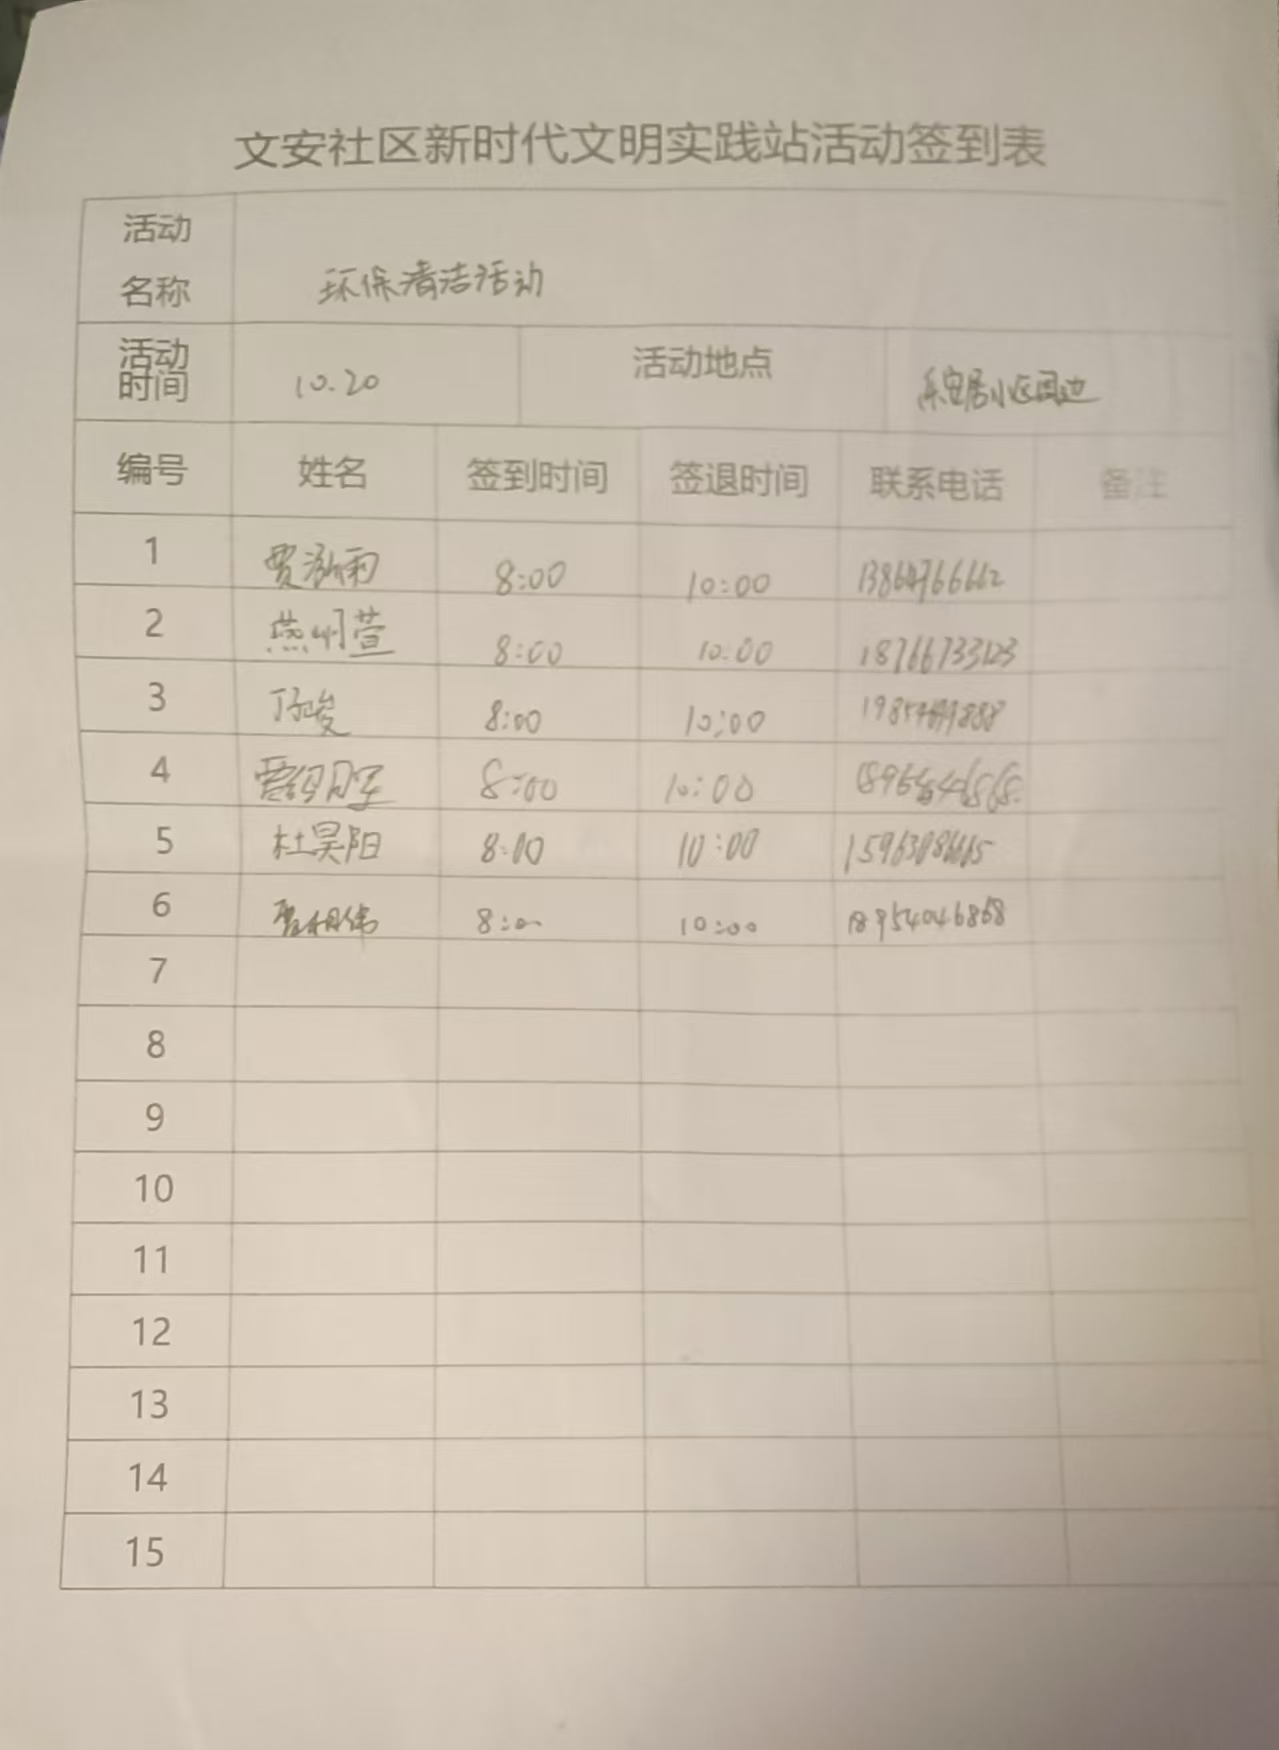 文安社区新时代文明实践站活动签到表
活动名称 环保清洁活动
活动时间 10.20 活动地点 乐安居小区周边
编号 姓名 签到时间 签退时间 联系电话 备注
1 贾泓雨 8:00 10:00
2 8:00 10:00 18766733123
3 8:00 10:00
4 8:00 10:00
5 杜昊阳 8:00 10:00
6 8:00 10:00 18954046868
7
8
9
10
11
12
13
14
15